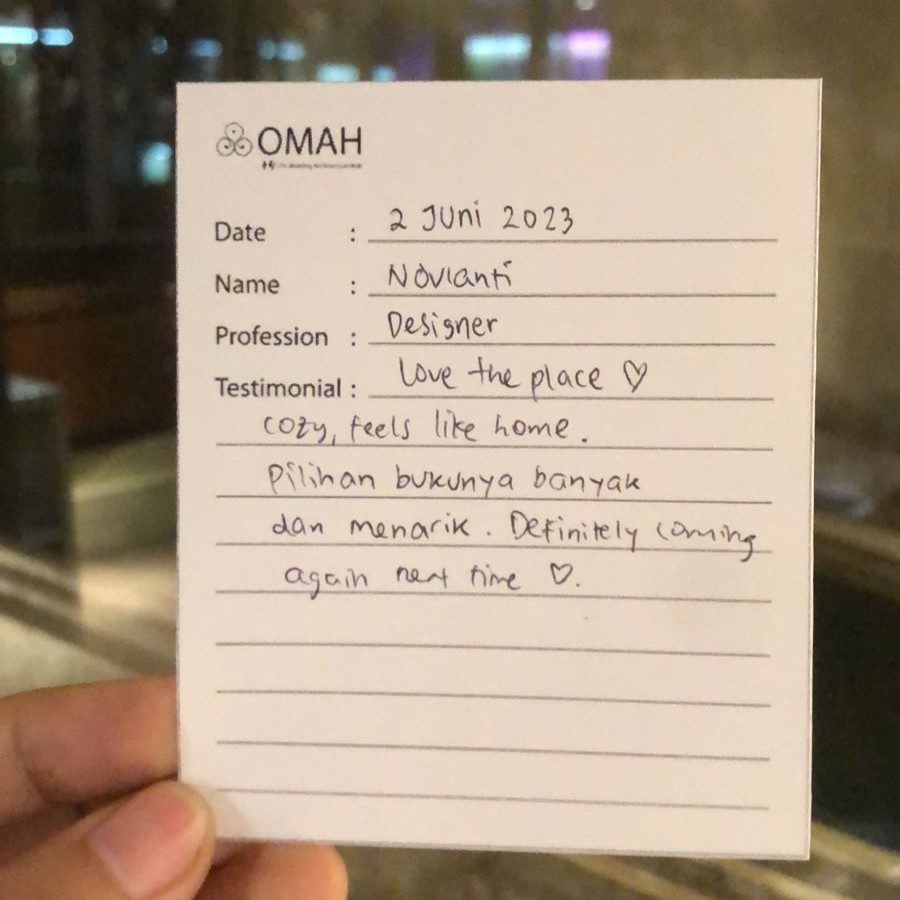 OMAH
Date : 2 Juni 2023
Name : Novianti
Profession : Designer
Testimonial : Love the place ♡
cozy, feels like home.
Pilihan bukunya banyak
dan menarik. Definitely coming
again next time ♡.